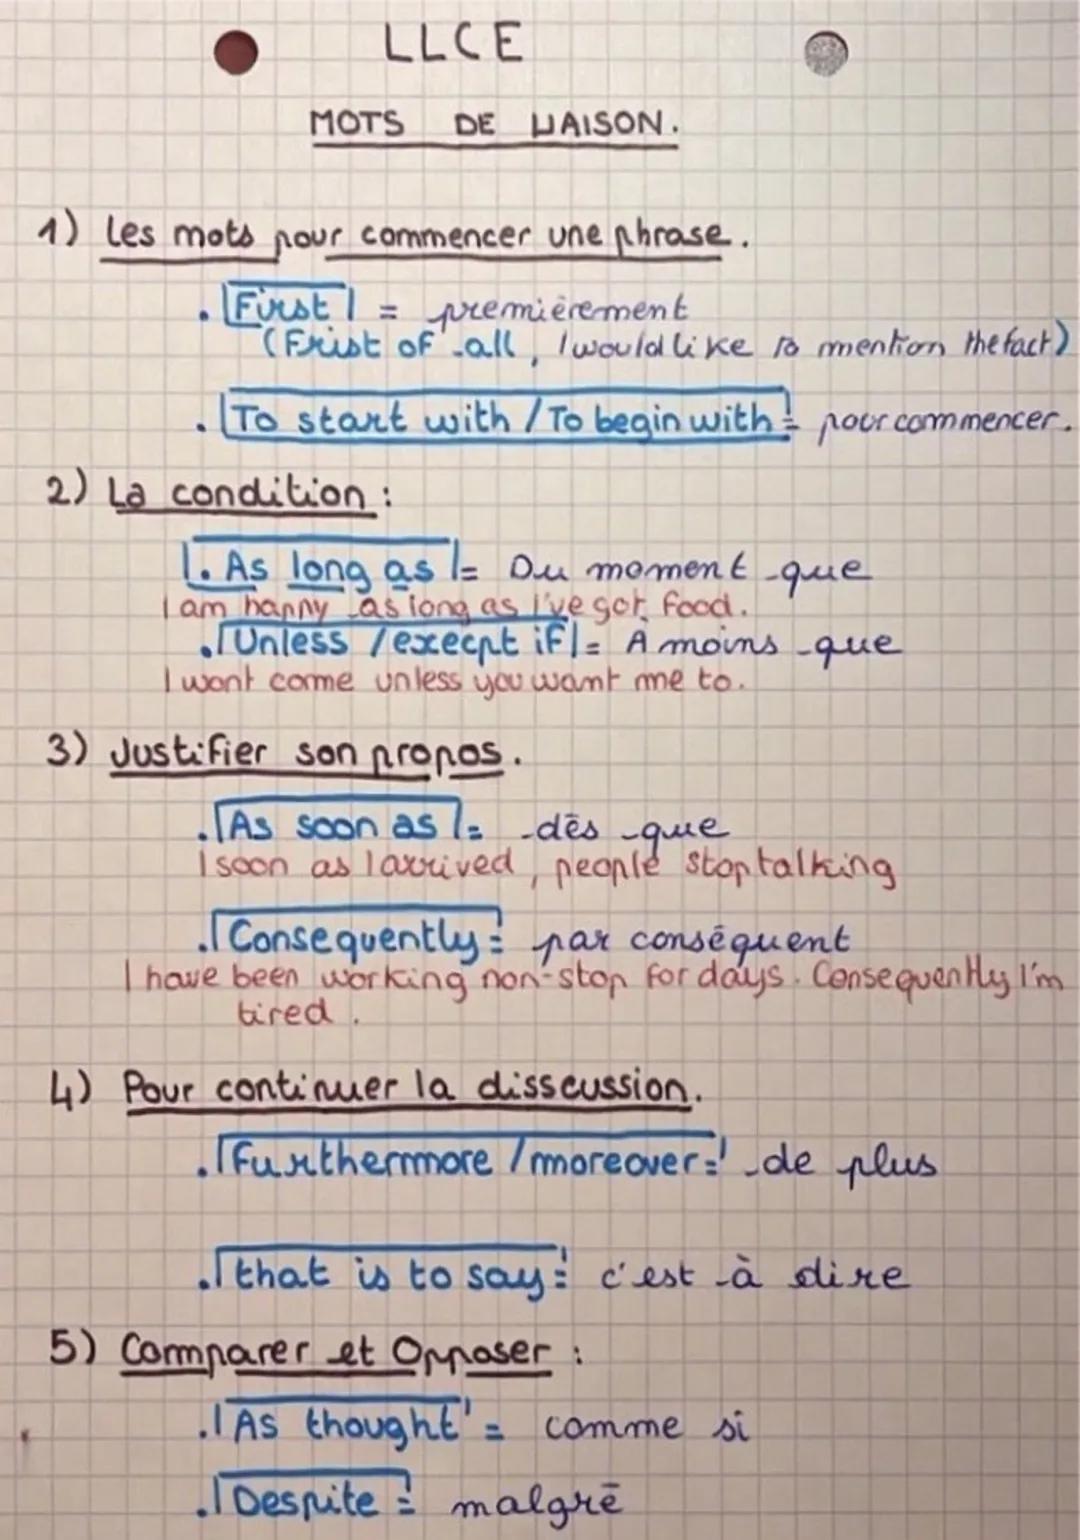 LLCE
MOTS DE LIAISON.
1) Les mots pour commencer une phrase.
. First = premièrement
(Frist of all, I would like to mention the fact)
. To start with / To begin with = pour commencer.
2) La condition :
. As long as = Du moment que
I am happy as long as I've got food.
. Unless / execpt if = À moins que
I wont come unless you want me to.
3) Justifier son propos.
. As soon as = dès que
I soon as I arrived, people stop talking
. Consequently = par conséquent
I have been working non-stop for days. Consequently I'm
tired.
4) Pour continuer la disscussion.
. Furthermore / moreover = de plus
. that is to say = c'est à dire
5) Comparer et Opposer :
. As thought = comme si
. Despite = malgré